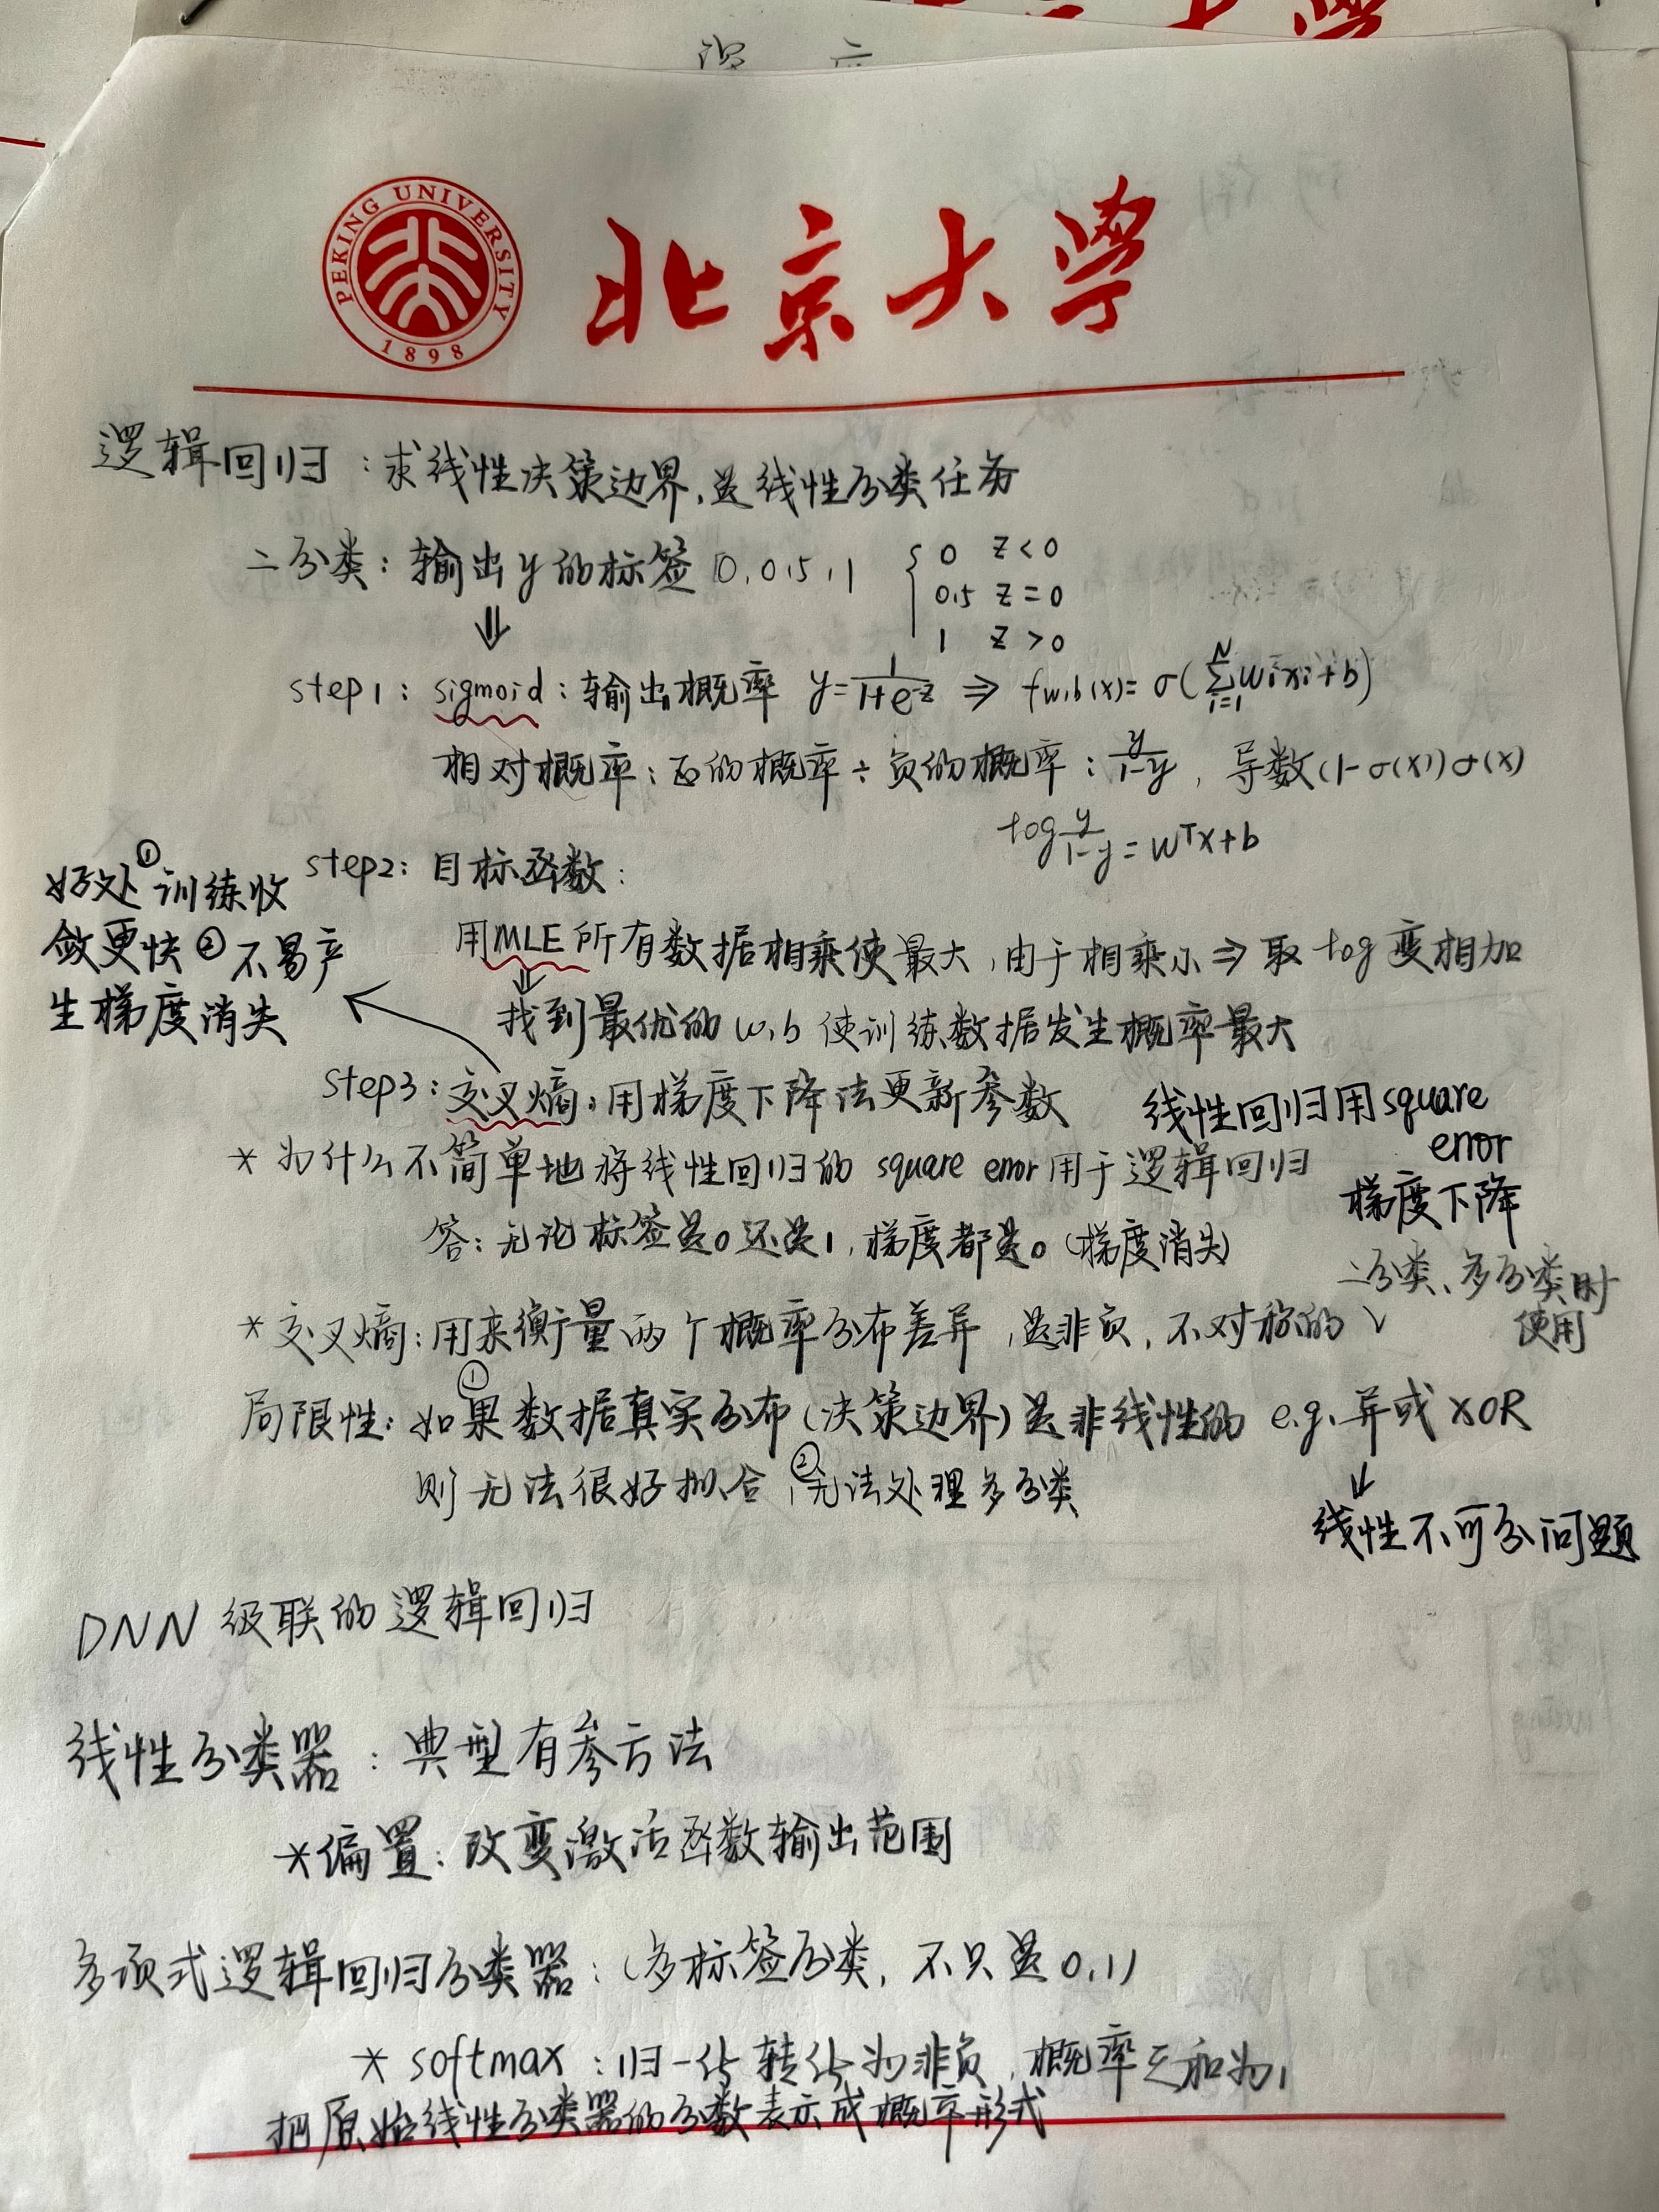 PEKING UNIVERSITY
1898
北京大学
逻辑回归：求线性决策边界，是线性分类任务
二分类：输出y的标签 0, 0.5, 1 { 0 z<0
0.5 z=0
1 z>0
⇓
step1：sigmoid：输出概率 y=1/(1+e^-z) ⇒ fw,b(x)=σ(∑_{i=1}^{N} wixi+b)
相对概率：正的概率÷负的概率：y/(1-y)，导数(1-σ(x))σ(x)
log y/(1-y) = wᵀx+b
step2：目标函数：
好处①训练收
敛更快②不易产
生梯度消失
用MLE所有数据相乘使最大，由于相乘小⇒取log变相加
⇓
找到最优的w,b使训练数据发生概率最大
step3：交叉熵：用梯度下降法更新参数
线性回归用square
error
梯度下降
*为什么不简单地将线性回归的square error用于逻辑回归
答：无论标签是0还是1，梯度都是0（梯度消失）
*交叉熵：用来衡量两个概率分布差异，是非负，不对称的
二分类、多分类时
使用
局限性：①如果数据真实分布(决策边界)是非线性的 e.g.异或XOR
则无法很好拟合，②无法处理多分类
⇓
线性不可分问题
DNN 级联的逻辑回归
线性分类器：典型有参方法
*偏置：改变激活函数输出范围
多项式逻辑回归分类器：(多标签分类，不只是0,1)
* softmax：归一化 转化为非负，概率之和为1
把原始线性分类器的分数表示成概率形式